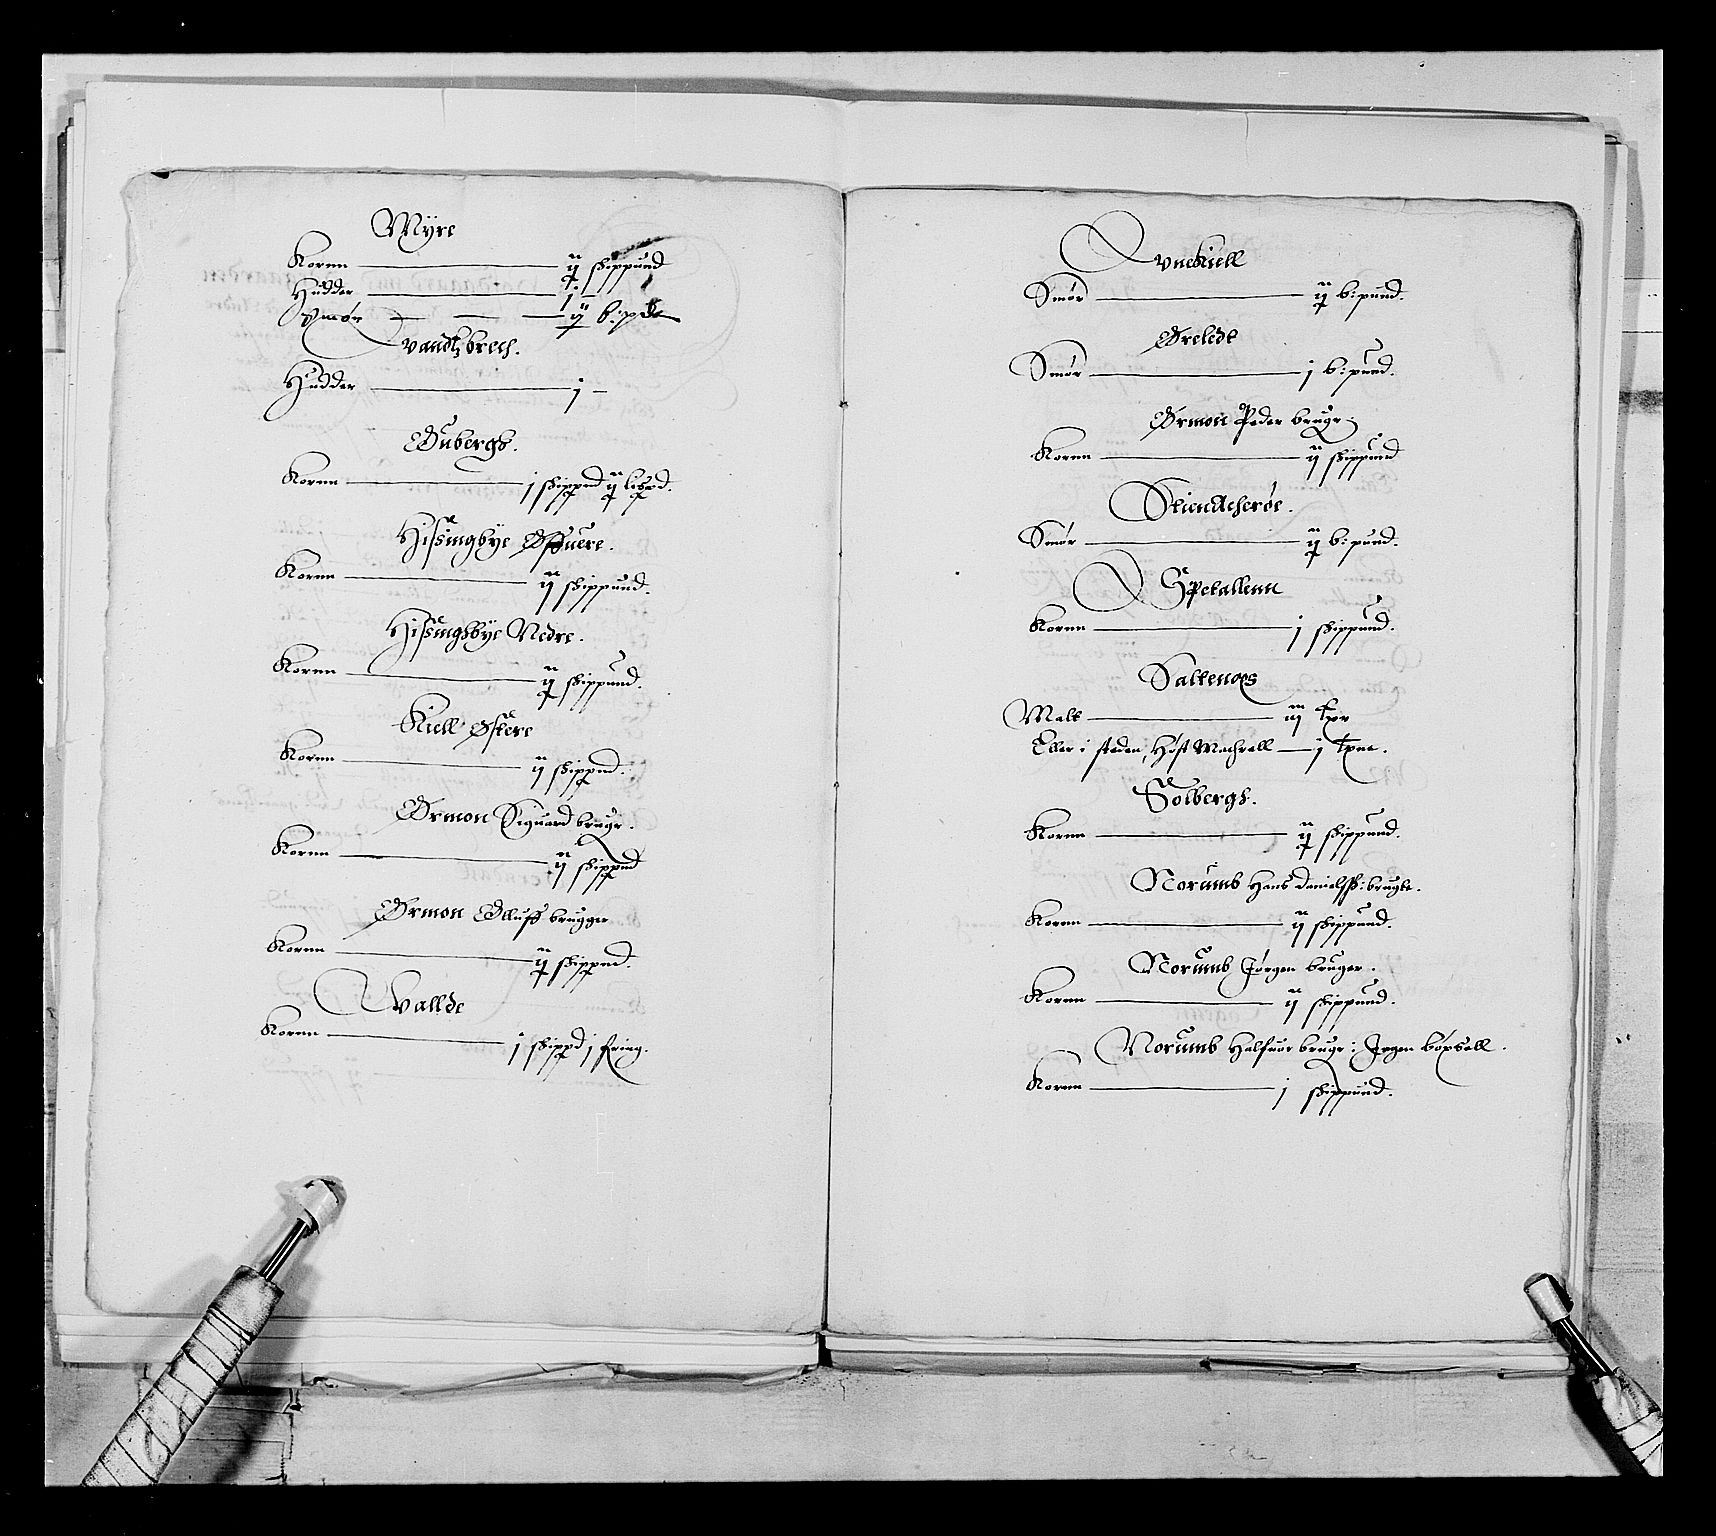 Myre
Kornn — ij skippund
Hudder — j —
Smør — ij b:pd
Vandtzbech.
Hudder — j —
Øubergh.
Kornn — j skippnd ij lispd.
Hissingbye Øffuere.
Kornn — ij skippund.
Hissingsbye Nedre.
Kornn — ij skippund.
Kiell Østere
Kornn — ij skippnd.
Ørmon Siguard brugr.
Kornn — ij skippnd
Ørmon Olluff brugger
Kornn — ij skippnd.
Vallde
Kornn — j skippd j fring.
Vnekiell
Smør — ij b:pund.
Øreledt
Smør — j b:pund.
Ørmon Peder brugr:
Kornn — ij skippund
Stienacherøe.
Smør — ij b:pund.
Spetallenn
Kornn — j skippund.
Saltenoes
Malt — iij tpr
Eller i steden, Høst Machrell — j tpne.
Solbergh.
Kornn — ij skippund.
Norumb Hans danielss: brugte.
Kornn — ij skippund.
Norumb Jørgen bruger.
Kornn — ij skippund.
Norumb Halfuor brugr: Jngen böxsell.
Kornn — j skippund.